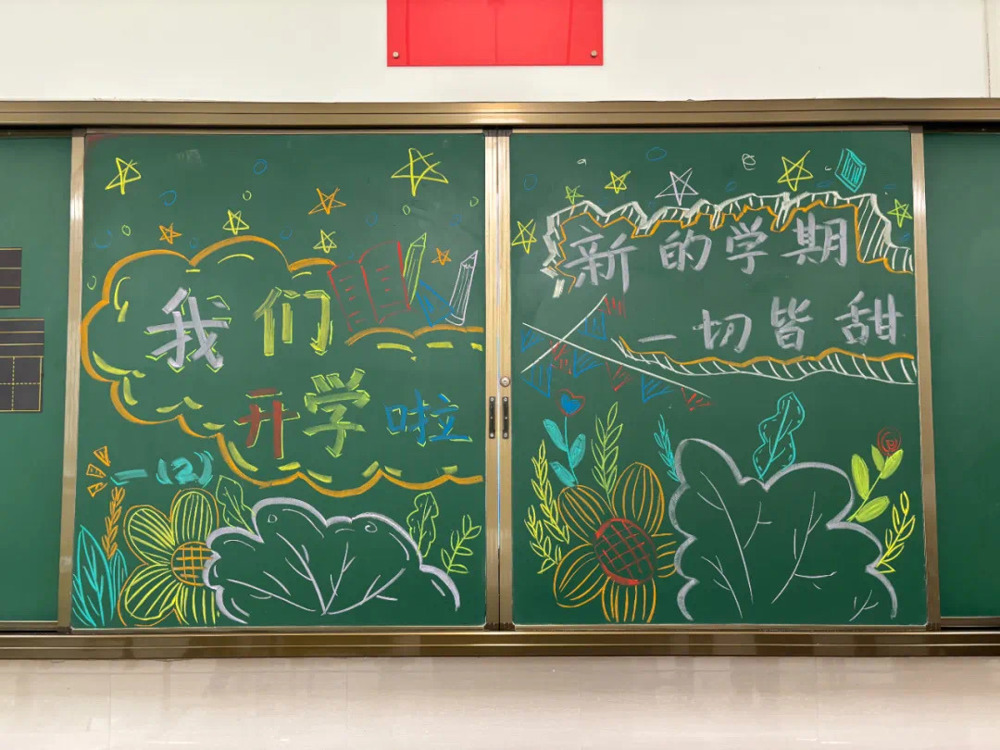 我们
开学啦
一(2)
新的学期
一切皆甜